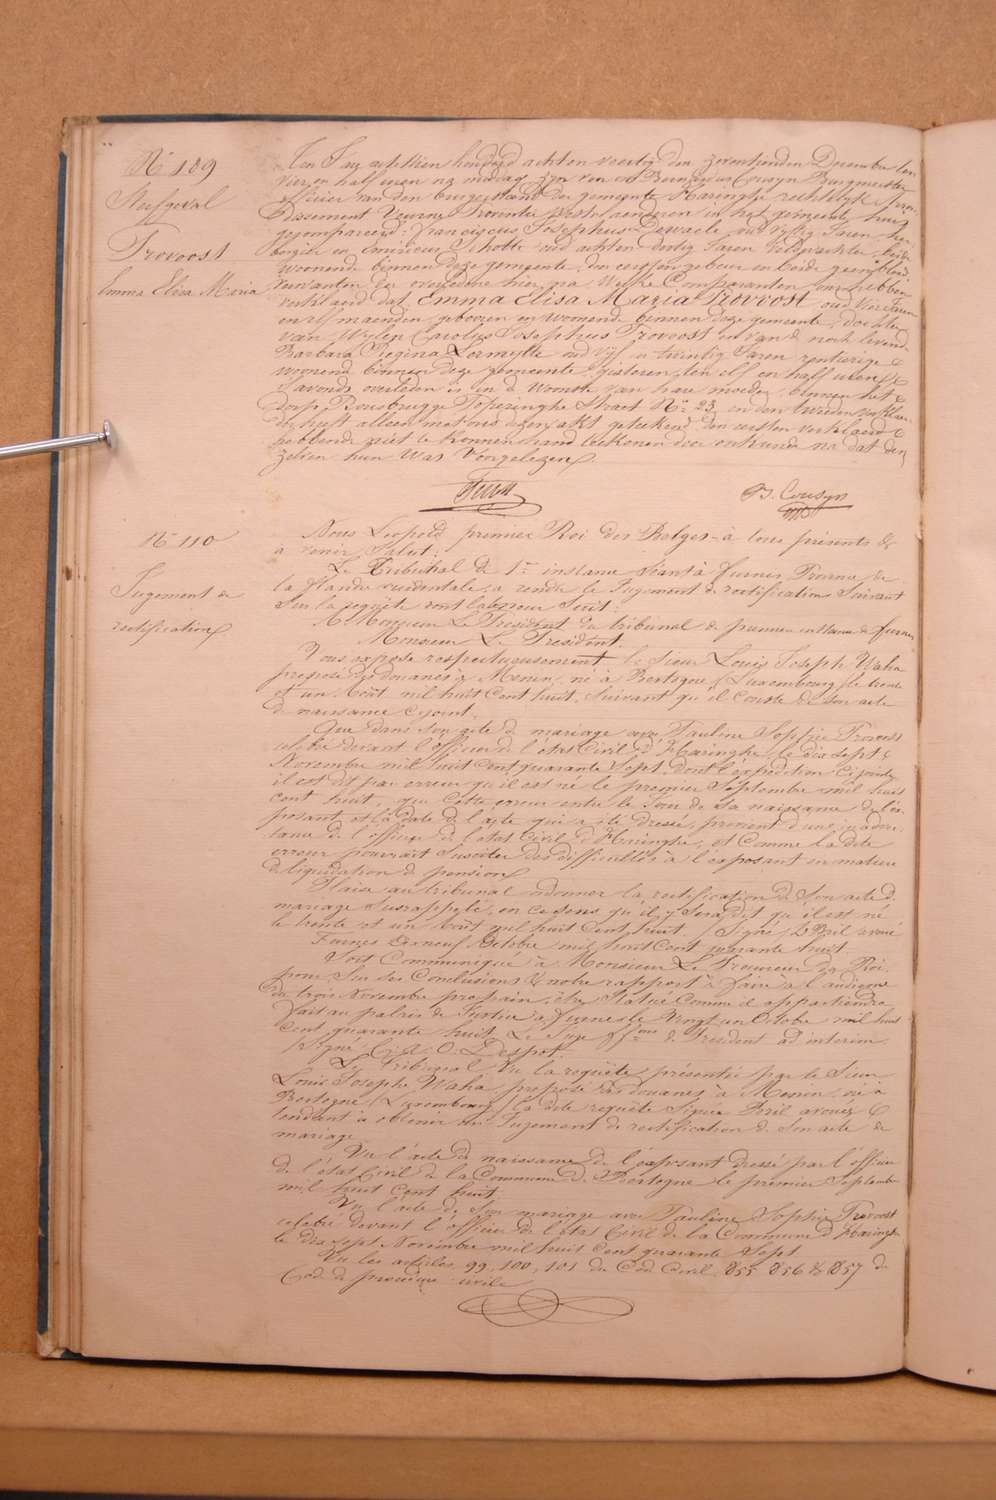 N° 109
Sterfgeval
Provoost
Emma Elisa Maria
Ten Jare achttien honderd acht en veertig den zeventienden December ten
vier en half uren na middag zyn voor ons Cousyn Burgmeester
officier van den burgerstand der gemeente Haringhe rechterlyk
Dissement Veurne Provintie West vlaenderen in het gemeente huis
gecompareerd: Franciscus Josephus Dewaele oud vyftig Jaren her-
bergier en Amicius Schotte oud acht en dertig Jaren Veldwachter, beide
woonende binnen deze gemeente, den eersten gebeur en beide geen bloed
verwanten der overledene hier na, Welke Comparanten ons hebben
verklaerd dat Emma Elisa Maria Provoost oud Vier Jaren
en elf maenden, gebooren en woonende binnen deze gemeente, dochter
van Wylen Carolus Josephus Provoost en van d' noch levende
Barbara Regina Lermytte oud vyf en twintig Jaren rentierige &
woonende binnen deze gemeente, gisteren, ten elf en half uren
s'avonds overleden is in d' Woonste van hare moeder, binnen het
dorp Rousbrugge Poperinghe Straet N° 23, en den tweeden verklaer-
der heeft alleen met ons dezen akt geteekend, den eersten verklaerd
hebbende niet te konnen hand teekenen door onkunde na dat den
zelven hun Was Voorgelezen.
B. Cousyn
N° 110
Jugement de
rectification
Nous Léopold premier Roi des Belges à tous présents &
a venir Salut:
Le Tribunal de 1re instance Séant à Furnes Province de
la Flandre occidentale, a rendu le Jugement de rectification Suivant
Sur la requête dont la teneur Suit:
A Monsieur Le Président du tribunal de premiere instance de Furnes
Monsieur Le Président.
Vous expose respectueusement le Sieur Louis Joseph Waha
preposé des douanes à Menin, né à Bertogne (Luxembourg) le trente
et un Août mil huit Cent huit, Suivant qu'il Conste de Son acte
de naissance Cijoint.
Que dans Son acte de mariage avec Pauline Sophie Provoost
celebré devant l'officier de l'état Civil d'Haringhe, le dix Sept
Novembre mil huit Cent quarante Sept, dont l'expédition Cijointe
il est dit par erreur qu'il est né le premier Septembre mil huit
cent huit, que Cette erreur entre le Jour de Sa naissance de l'ex-
posant et la date de l'acte qui a été dressé, provient d'une inadver-
tance de l'officier de l'état Civil d'Haringhe, et Comme la dite
erreur pourrait Susciter des difficultés à l'exposant en matiere
de liquidation de pension.
Plaise au tribunal ordonner la rectification de Son acte de
mariage Susrappelé, en ce sens qu'il y Sera dit qu'il est né
le trente et un Août mil huit Cent huit. (Signé) Bril avoué
Furnes le neuf Octobre mil huit Cent quarante huit.
Soit Communiqué à Monsieur Le Procureur du Roi
pour Sur Ses Conclusions & notre rapport à faire à l'audience
du trois Novembre prochain, être Statué Comme il appartiendra
fait au palais de Justice à Furnes le Vingt un Octobre mil huit
Cent quarante huit. Le Juge ff.ons de Président ad interim.
Le Tribunal Vu la requête présentée par le Sieur
Louis Joseph Waha, preposé des douanes à Menin, né à
Bertogne (Luxembourg) la dite requête Signée Bril avoué &
tendant à obtenir un Jugement de rectification de Son acte de
mariage
Vu l'acte de naissance de l'exposant dressé par l'officier
de l'état Civil de la Commune de Bertogne le premier Septembre
mil huit Cent huit.
Vu l'acte de Son mariage avec Pauline Sophie Provoost
celebré devant l'officier de l'état Civil de la Commune d'Haringhe
le dix Sept Novembre mil huit Cent quarante Sept
Vu les articles 99, 100, 101 du Code Civil, 855 856 & 857 du
Code de procédure civile